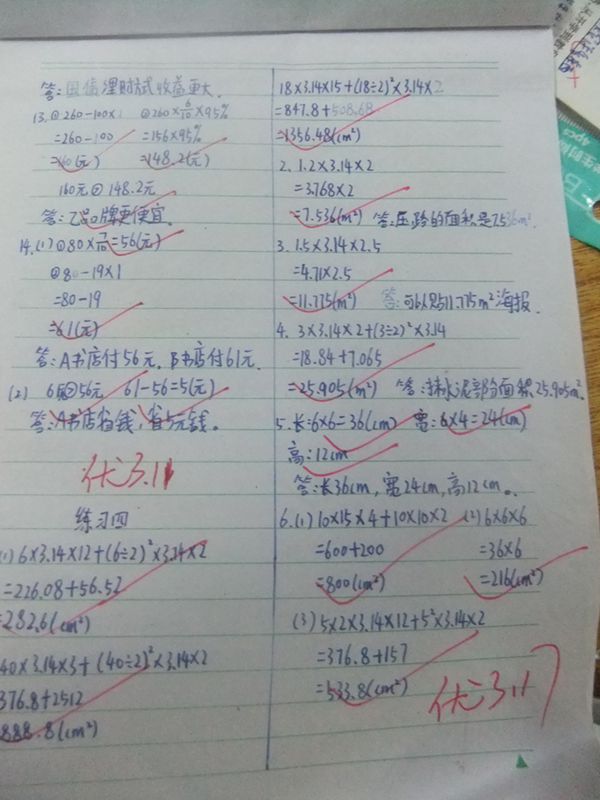 答:理财方式收益更大.
13.①260-100×1 ②260×6/10×95%
=260-100 =156×95%
=160(元) =148.2(元)
160元>148.2元
答:乙品牌更便宜.
14.(1)①80×7/10=56(元)
②80-19×1
=80-19
=61(元)
答:A书店付56元,B书店付61元.
(2) 61元>56元 61-56=5(元)
答:A书店省钱,省5元钱。
优3.11
练习四
(1)6×3.14×12+(6÷2)²×3.14×2
=226.08+56.52
=282.6(cm²)
40×3.14×3+(40÷2)²×3.14×2
376.8+2512
888.8(cm²)
18×3.14×15+(18÷2)²×3.14×2
=847.8+508.68
=1356.48(cm²)
2. 1.2×3.14×2
=3.768×2
=7.536(m²) 答:压路的面积是7.536m².
3. 1.5×3.14×2.5
=4.71×2.5
=11.775(m²) 答:可以贴11.775m²海报.
4. 3×3.14×2+(3÷2)²×3.14
=18.84+7.065
=25.905(m²) 答:抹水泥部分面积25.905m².
5.长:6×6=36(cm) 宽:6×4=24(cm)
高:12cm
答:长36cm,宽24cm,高12cm。
6.(1)10×15×4+10×10×2 (2)6×6×6
=600+200 =36×6
=800(cm²) =216(cm²)
(3)5×2×3.14×12+5²×3.14×2
=376.8+157
=533.8(cm²)
优3.17